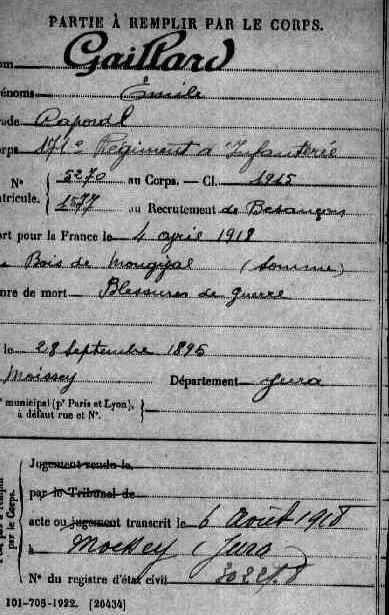 PARTIE À REMPLIR PAR LE CORPS.
om Gaillard
énoms Émile
ade Caporal
orps 171e Régiment d'Infanterie
N° 5270 au Corps. — Cl. 1915
tricule. 1577 au Recrutement de Besançon
ort pour la France le 4 avril 1918
Bois de (Somme)
nre de mort Blessures de guerre
le 28 Septembre 1895
Moissey Département Jura
municipal (pr Paris et Lyon),
à défaut rue et N°.
Jugement rendu le
par le Tribunal de
acte ou jugement transcrit le 6 août 1918
à Moissey (Jura)
N° du registre d'état civil
par le Corps.
101-708-1922. [26434]